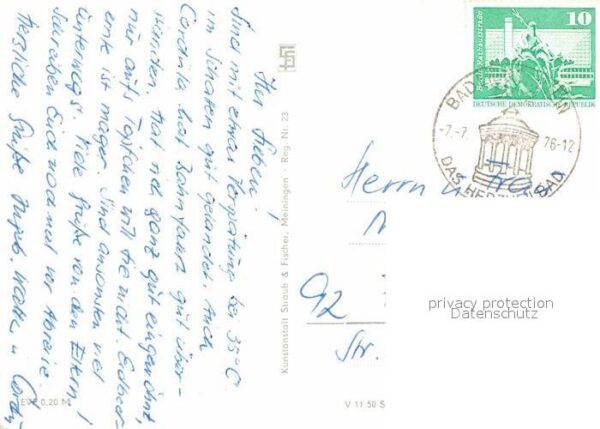 Ihr Lieben!
Sind mit etwas Verspätung bei 35°C
im Schatten gut gelandet. Auch
Cordula hat Bahnfahrt gut über-
standen, hat sich ganz gut eingewöhnt,
nur aufs Töpfchen will sie nicht. Erdbeer-
ernte ist mager. Sind ansonsten viel
unterwegs. Viele Grüße von den Eltern!
Schreiben Euch noch mal vor Abreise.
Herzliche Grüße
EVP 0,20 M
Kunstanstalt Straub & Fischer, Meiningen · Reg. Nr. 23
V 11 50 S
10
Berlin, Rathausstraße
DEUTSCHE DEMOKRATISCHE REPUBLIK
BAD
-7.-7. 76-12
DAS HERZHEILBAD
Herrn u. Frau
92
Str.
privacy protection
Datenschutz